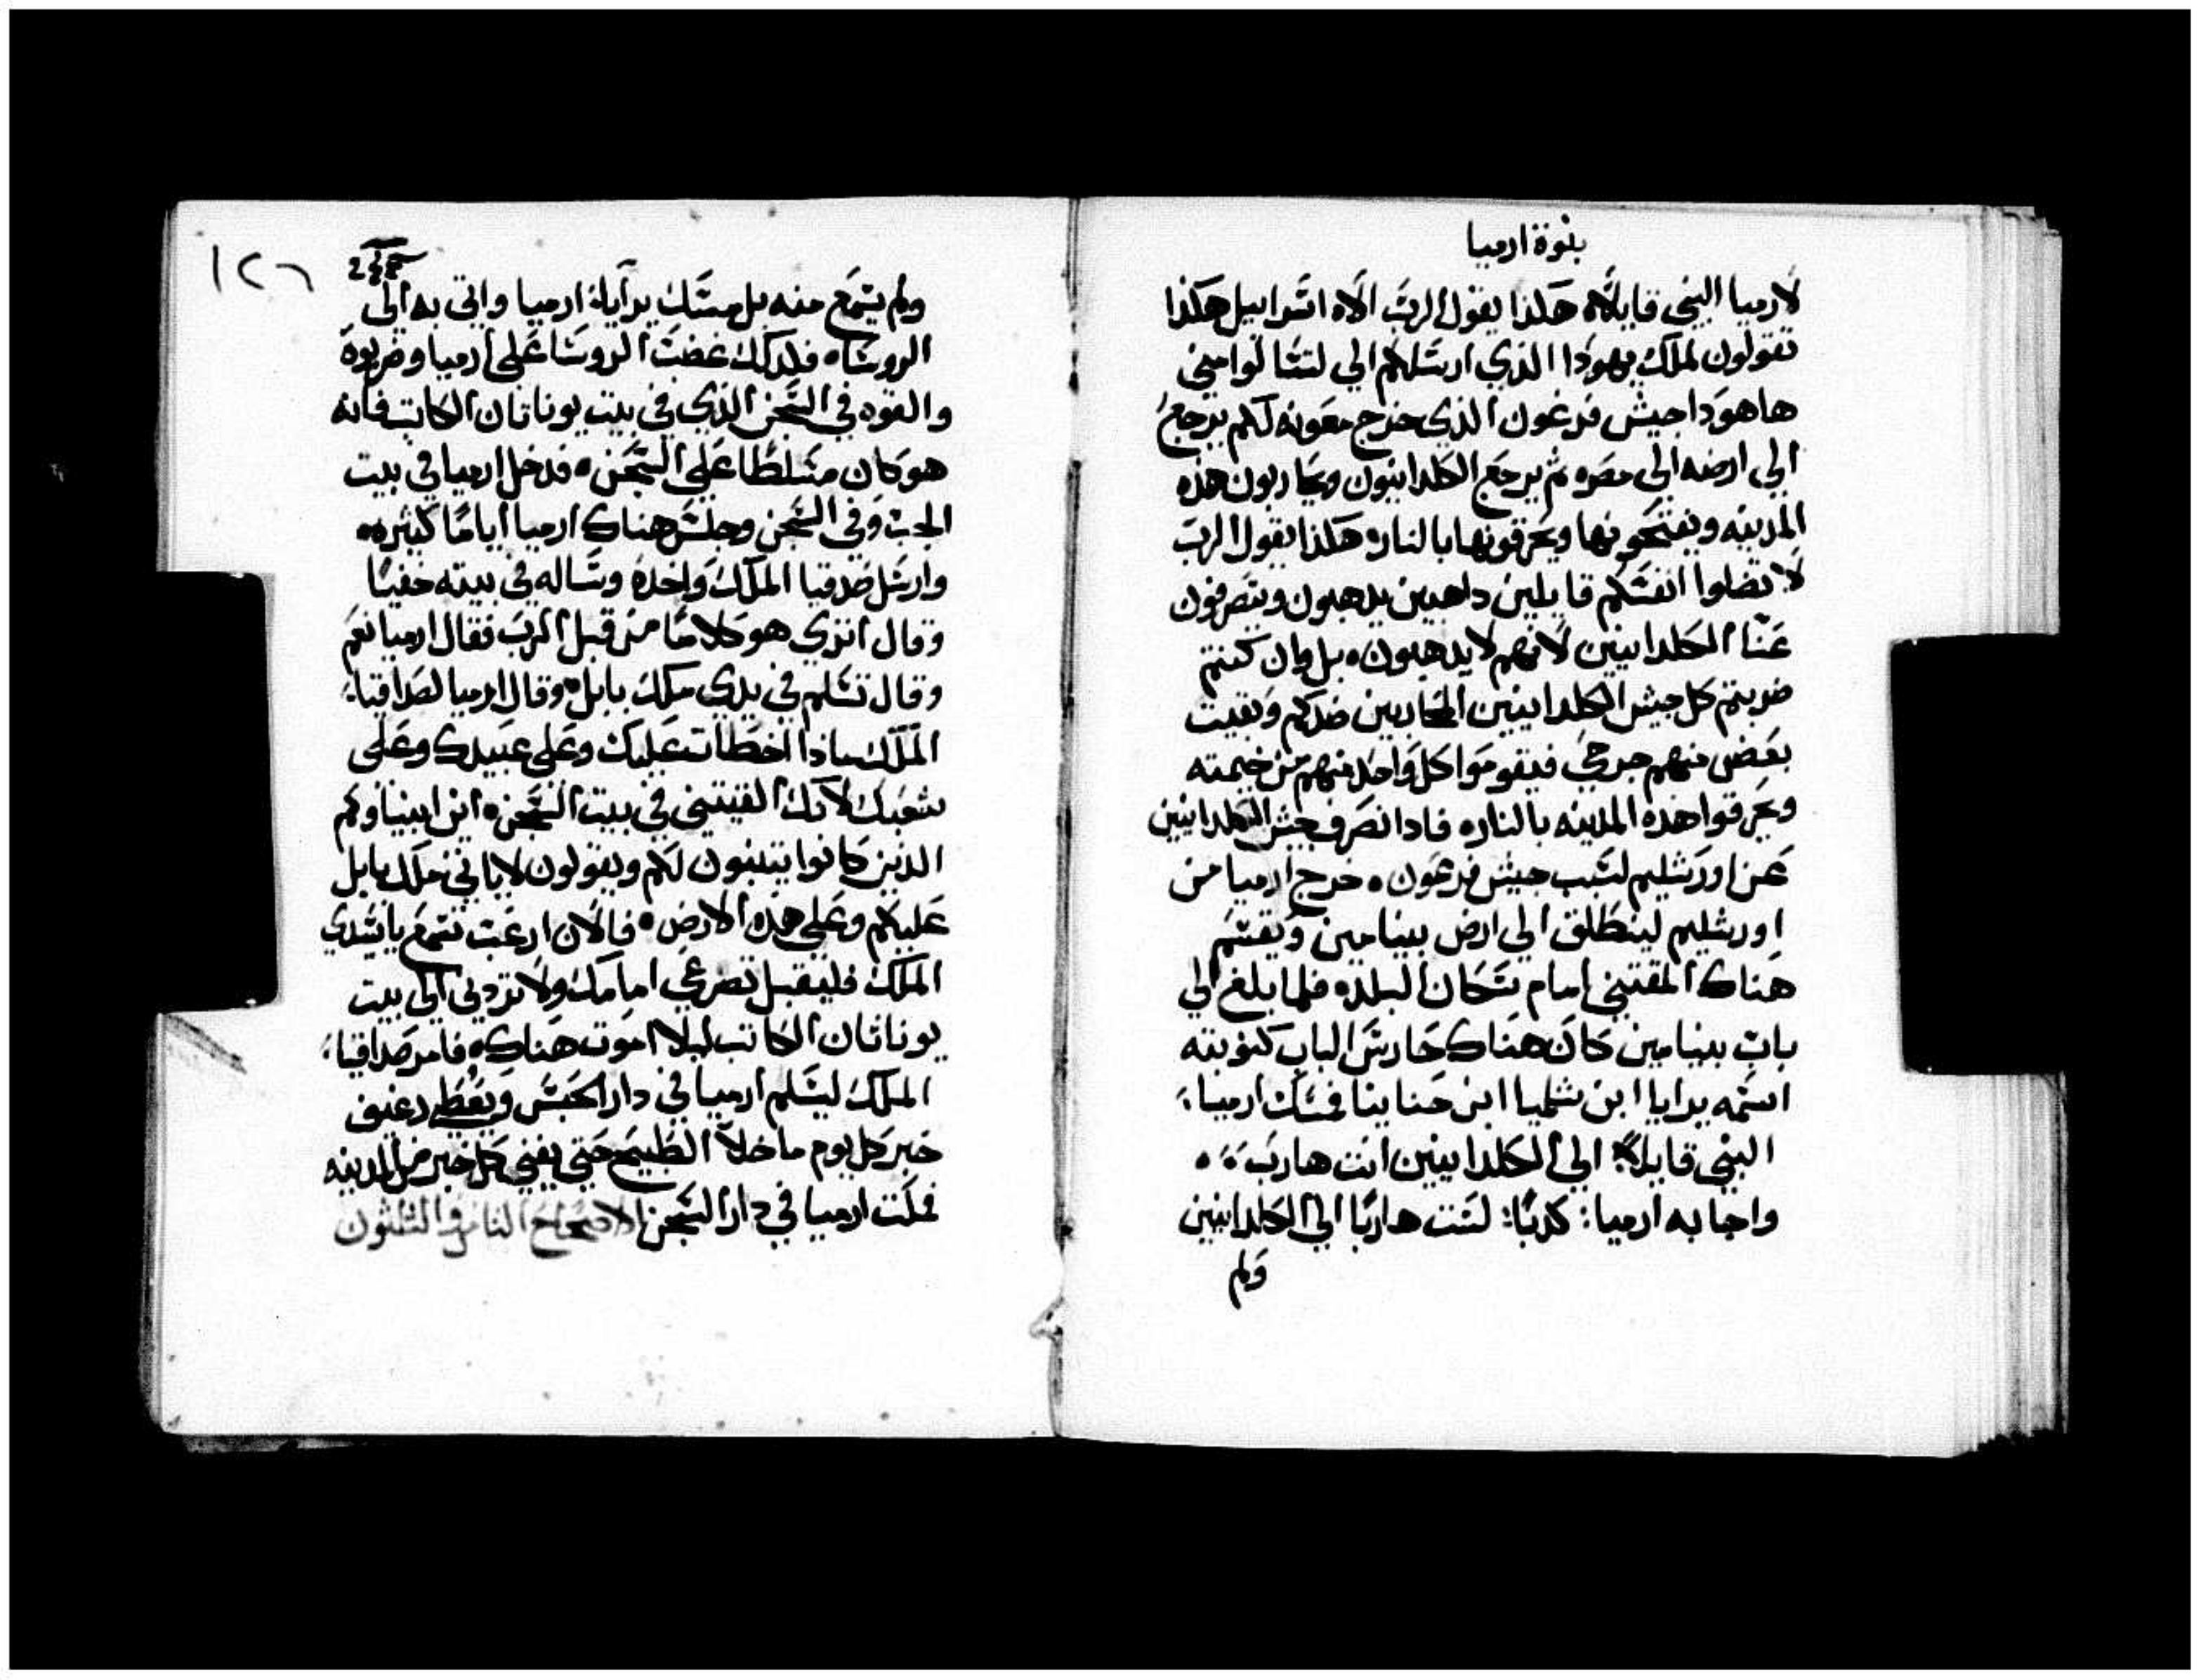 بنوة ارميا
لارميا النبي قايلاً ه هكذا يقول الرب الاه اسراييل هكذا
تقولون لملك يهودا الذي ارسلكم الي لتسالوا مني
ها هودا جيش فرعون الذي خرج معونه لكم يرجع
الي ارضه الى مصره ثم يرجع الكلدانيون ويحاربون هذه
المدينه ويفتحونها ويحرقونها بالناره هكذا يقول الرب
لا تضلوا انفسكم قايلين داهبين يدهبون وينصرفون
عنا الكلدانيين لانهم لا يدهبون ه بل وان كنتم
ضربتم كل جيش الكلدانيين المحاربين ضدكم وبقيت
بعض منهم جرحي فيقوموا كل واحد منهم من خيمته
ويحرقوا هذه المدينه بالناره فادا انصرف جيش الكلدانيين
عن اورشليم لسبب جيش فرعون ه خرج ارميا من
اورشليم لينطلق الي ارض بينامين ويقسم
هناك المقتني امام سكان البلده فلما بلغ الي
باب بينيامين كان هناك حارس الباب كنوبته
اسمه يرايا ابن شلميا ابن حنانيا فمسك ارميا
النبي قايلاً الي الكلدانيين انت هارب
واجابه ارميا : كدبًا : لست هاربًا الي الكلدانيين
ولم
١٢٦
ولم يسمع منه بل مسك يرايا ارميا واتي به الى
الروسا ه فلدلك غضت الروسا على ارميا وضربوه
والقوه في السجن الذي في بيت يوناتان الكاتب فانه
هو كان مسلطًا على السجن ه فدخل ارميا في بيت
الجب وفى السجن وجلس هناك ارميا ايامًا كثيره ه
وارسل صدقيا الملك واخده وساله في بيته خفيًا
وقال اتري هو كلامًا من قبل الرب فقال ارميا نعم
وقال تسلم في يدي ملك بابل ه وقال ارميا لصداقيا
الملك ماذا اخطات عليك وعلى عبيدك وعلى
شعبك لانك القيتني في بيت السجن ه اين انبياوكم
الذين كانوا يتنبون لكم ويقولون لا ياتي ملك بابل
عليكم وعلى هذه الارض ه فالان ارغب تسمع يا سيدي
الملك فليقبل تضرعي امامك ولا تردني الى بيت
يوناتان الكاتب ليلا اموت هناك ه فامر صداقيا
الملك ليسلم ارميا في دار الحبس ويعطي رغيف
خبز كل يوم ما خلا الطبيخ حتي يفني كل خبز من المدينه
فملت ارميا في دار السجن الاصحاح الثامن والثلثون